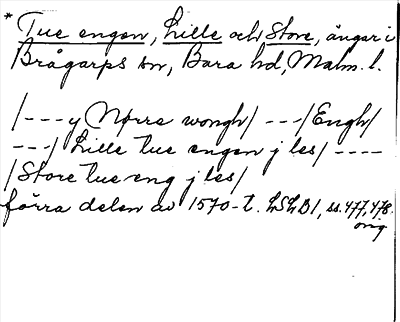 * Tue engen, Lille och Store, ängar i
Brågarps sn, Bara hd, Malm. l.
/---y Nørre wongh/ ---/Engh/
---/ Lille tue engen j les/ ----
/Store tue eng j les/
förra delen av 1570-t. LSLB1, ss. 477, 478.
orig